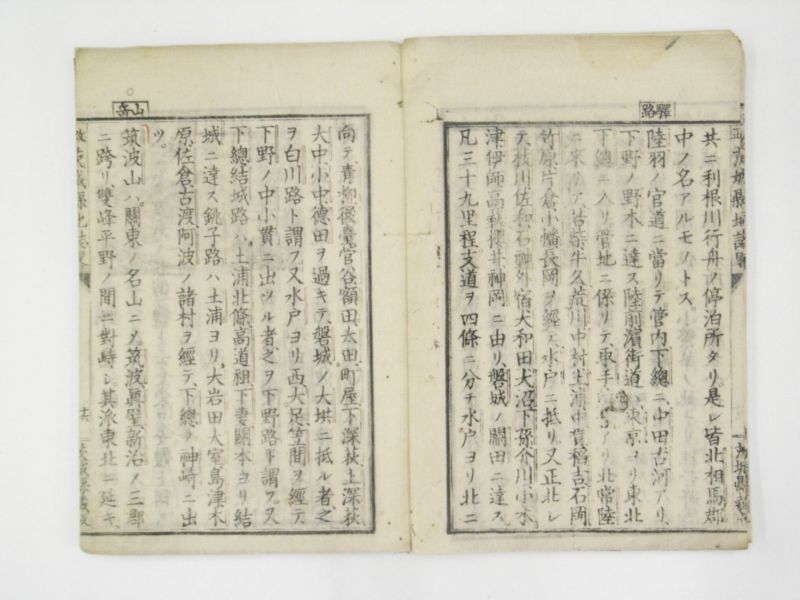 驛路
共ニ利根川行舟ノ停泊所タリ。是レ皆北相馬郡
中ノ名アルモノトス。
陸羽ノ官道ニ當リテ管内下總ニ中田古河アリ、
下野ノ野木ニ達ス陸前濱街道ハ東京ヨリ東北
下總ニ入リ管地ニ係リテ取手アリ北常陸
ニ來リテ若柴牛久荒川中村土浦中貫稻吉石岡
竹原片倉小幡長岡ヲ經テ水戸ニ抵リ又正北シ
テ枝川佐和石神外宿大和田大沼下孫介川小木
津伊師高萩櫻井神岡ニ由リ磐城ノ關田ニ達ス
凡三十九里程支道ヲ四條ニ分チ水戸ヨリ北ニ
山岳
向テ青柳後臺官谷額田太田町屋下深荻上深荻
大中小中德田ヲ過キテ磐城ノ大垬ニ抵ル者之
ヲ白川路ト謂フ又水戸ヨリ西大足笠間ヲ經テ
下野ノ中小貫ニ出ツル者之ヲ下野路ト謂フ又
下總結城路ハ土浦北條高道祖下妻關本ヨリ結
城ニ達ス銚子路ハ土浦ヨリ大岩田大室島津木
原佐倉古渡阿波ノ諸村ヲ經テ下總ノ神崎ニ出
ツ。
筑波山ハ關東ノ名山ニメ筑波眞壁新治ノ三郡
ニ跨リ雙峰平野ノ間ニ對峙シ其派東北ニ延キ